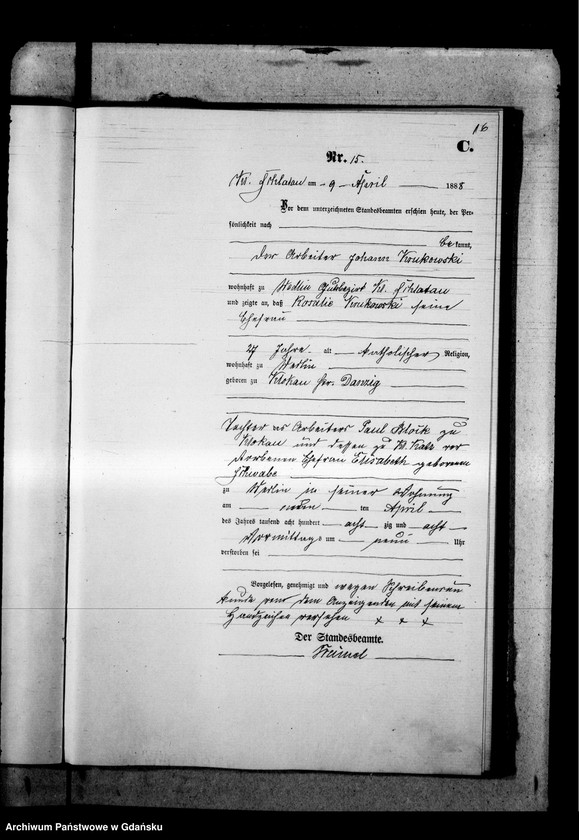 16
C.
Nr. 15.
Kl. am 9 April 1888
Vor dem unterzeichneten Standesbeamten erschien heute, der Per-
sönlichkeit nach
be kannt,
der Arbeiter Johann
wohnhaft zu Gutsbezirk Kl.
und zeigte an, daß Rosalie seine
Ehefrau
27 Jahre alt katholischer Religion,
wohnhaft zu
geboren zu Klokau Kr. Danzig
Tochter des Arbeiters Paul zu
Klokau und dessen zu Kl. Katz ver
storbenen Ehefrau Elisabeth geborenen
Schwabe
zu in seiner Wohnung
am neun ten April
des Jahres tausend acht hundert acht zig und acht
Vormittags um neun Uhr
verstorben sei
Vorgelesen, genehmigt und wegen Schreibensun
kunde von dem Anzeigenden mit seinem
Handzeichen versehen x x x
Der Standesbeamte.
Archiwum Państwowe w Gdańsku